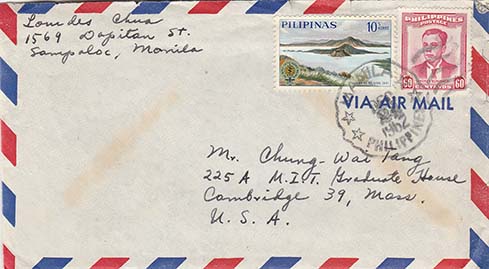 Lourdes Chua
1569 Dapitan St.
Sampaloc, Manila
PILIPINAS 10s
PHILIPPINES
POSTAGE
60 CENTAVOS 60
MANILA
DEC
1962
PHILIPPINES
VIA AIR MAIL
Mr. Chung-Wai Tang
225A M.I.T. Graduate House
Cambridge 39, Mass.
U. S. A.